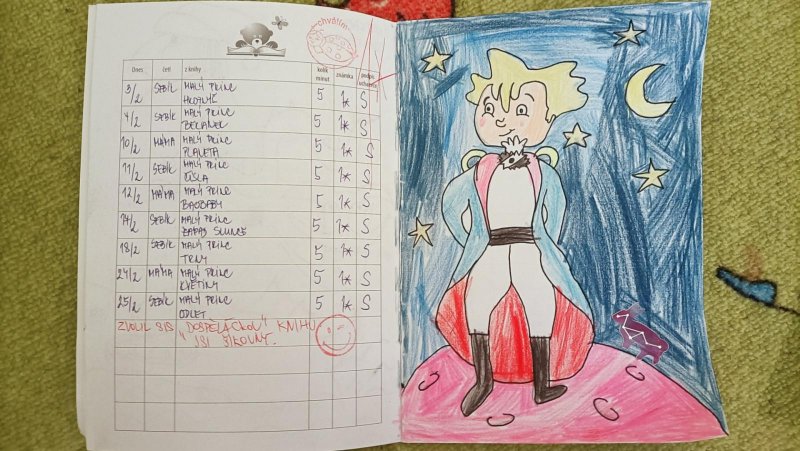 chválím
Dnes četl z knihy kolik minut známka podpis učitele
3/2 SEBÍK MALÝ PRINC 5 1* S
HROZNÝŠ
4/2 SEBÍK MALÝ PRINC 5 1* S
BERÁNEK
10/2 MÁMA MALÝ PRINC 5 1* S
PLANETA
11/2 SEBÍK MALÝ PRINC 5 1* S
ČÍSLA
12/2 MÁMA MALÝ PRINC 5 1* S
BAOBABY
14/2 SEBÍK MALÝ PRINC 5 1* S
ZÁPAD SLUNCE
18/2 SEBÍK MALÝ PRINC 5 1* S
TRNY
24/2 MÁMA MALÝ PRINC 5 1* S
KVĚTINY
25/2 SEBÍK MALÝ PRINC 5 1* S
ODLET
ZVOLIL SIS "DOSPĚLÁCKOU" KNIHU,
JSI ŠIKOVNÝ.